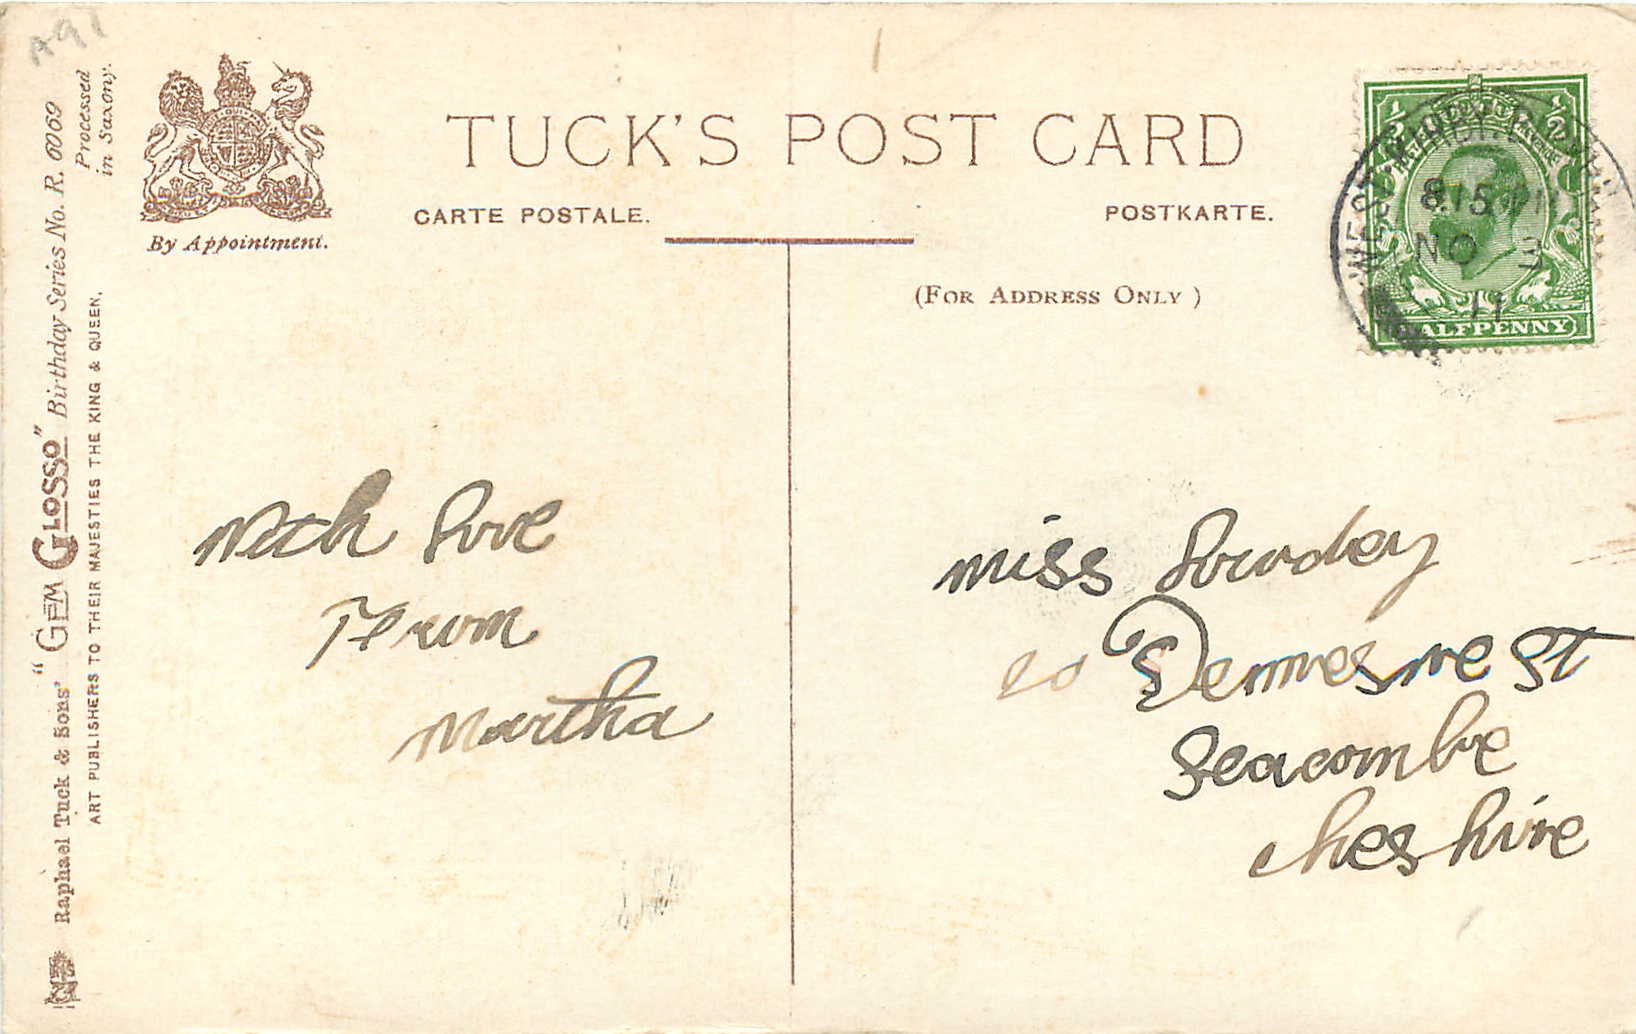 A91
Processed
in Saxony.
By Appointment.
TUCK'S POST CARD
CARTE POSTALE.
POSTKARTE.
(FOR ADDRESS ONLY)
Raphael Tuck & Sons' "GEM GLOSSO" Birthday Series No. R. 0069
ART PUBLISHERS TO THEIR MAJESTIES THE KING & QUEEN.
½ ½
8.15 PM
NO 3
11
HALFPENNY
With Love
From
Martha
Miss
St
Seacombe
Cheshire